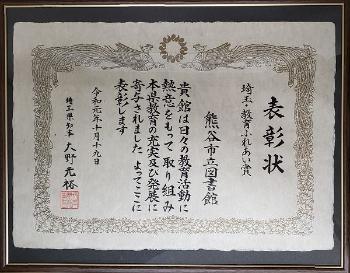 表彰状
埼玉・教育ふれあい賞
熊谷市立図書館
貴館は日々の教育活動に
熱意をもって取り組み
本県教育の充実及び発展に
寄与されました よってここに
表彰します
令和元年十月十九日
埼玉県知事 大野元裕